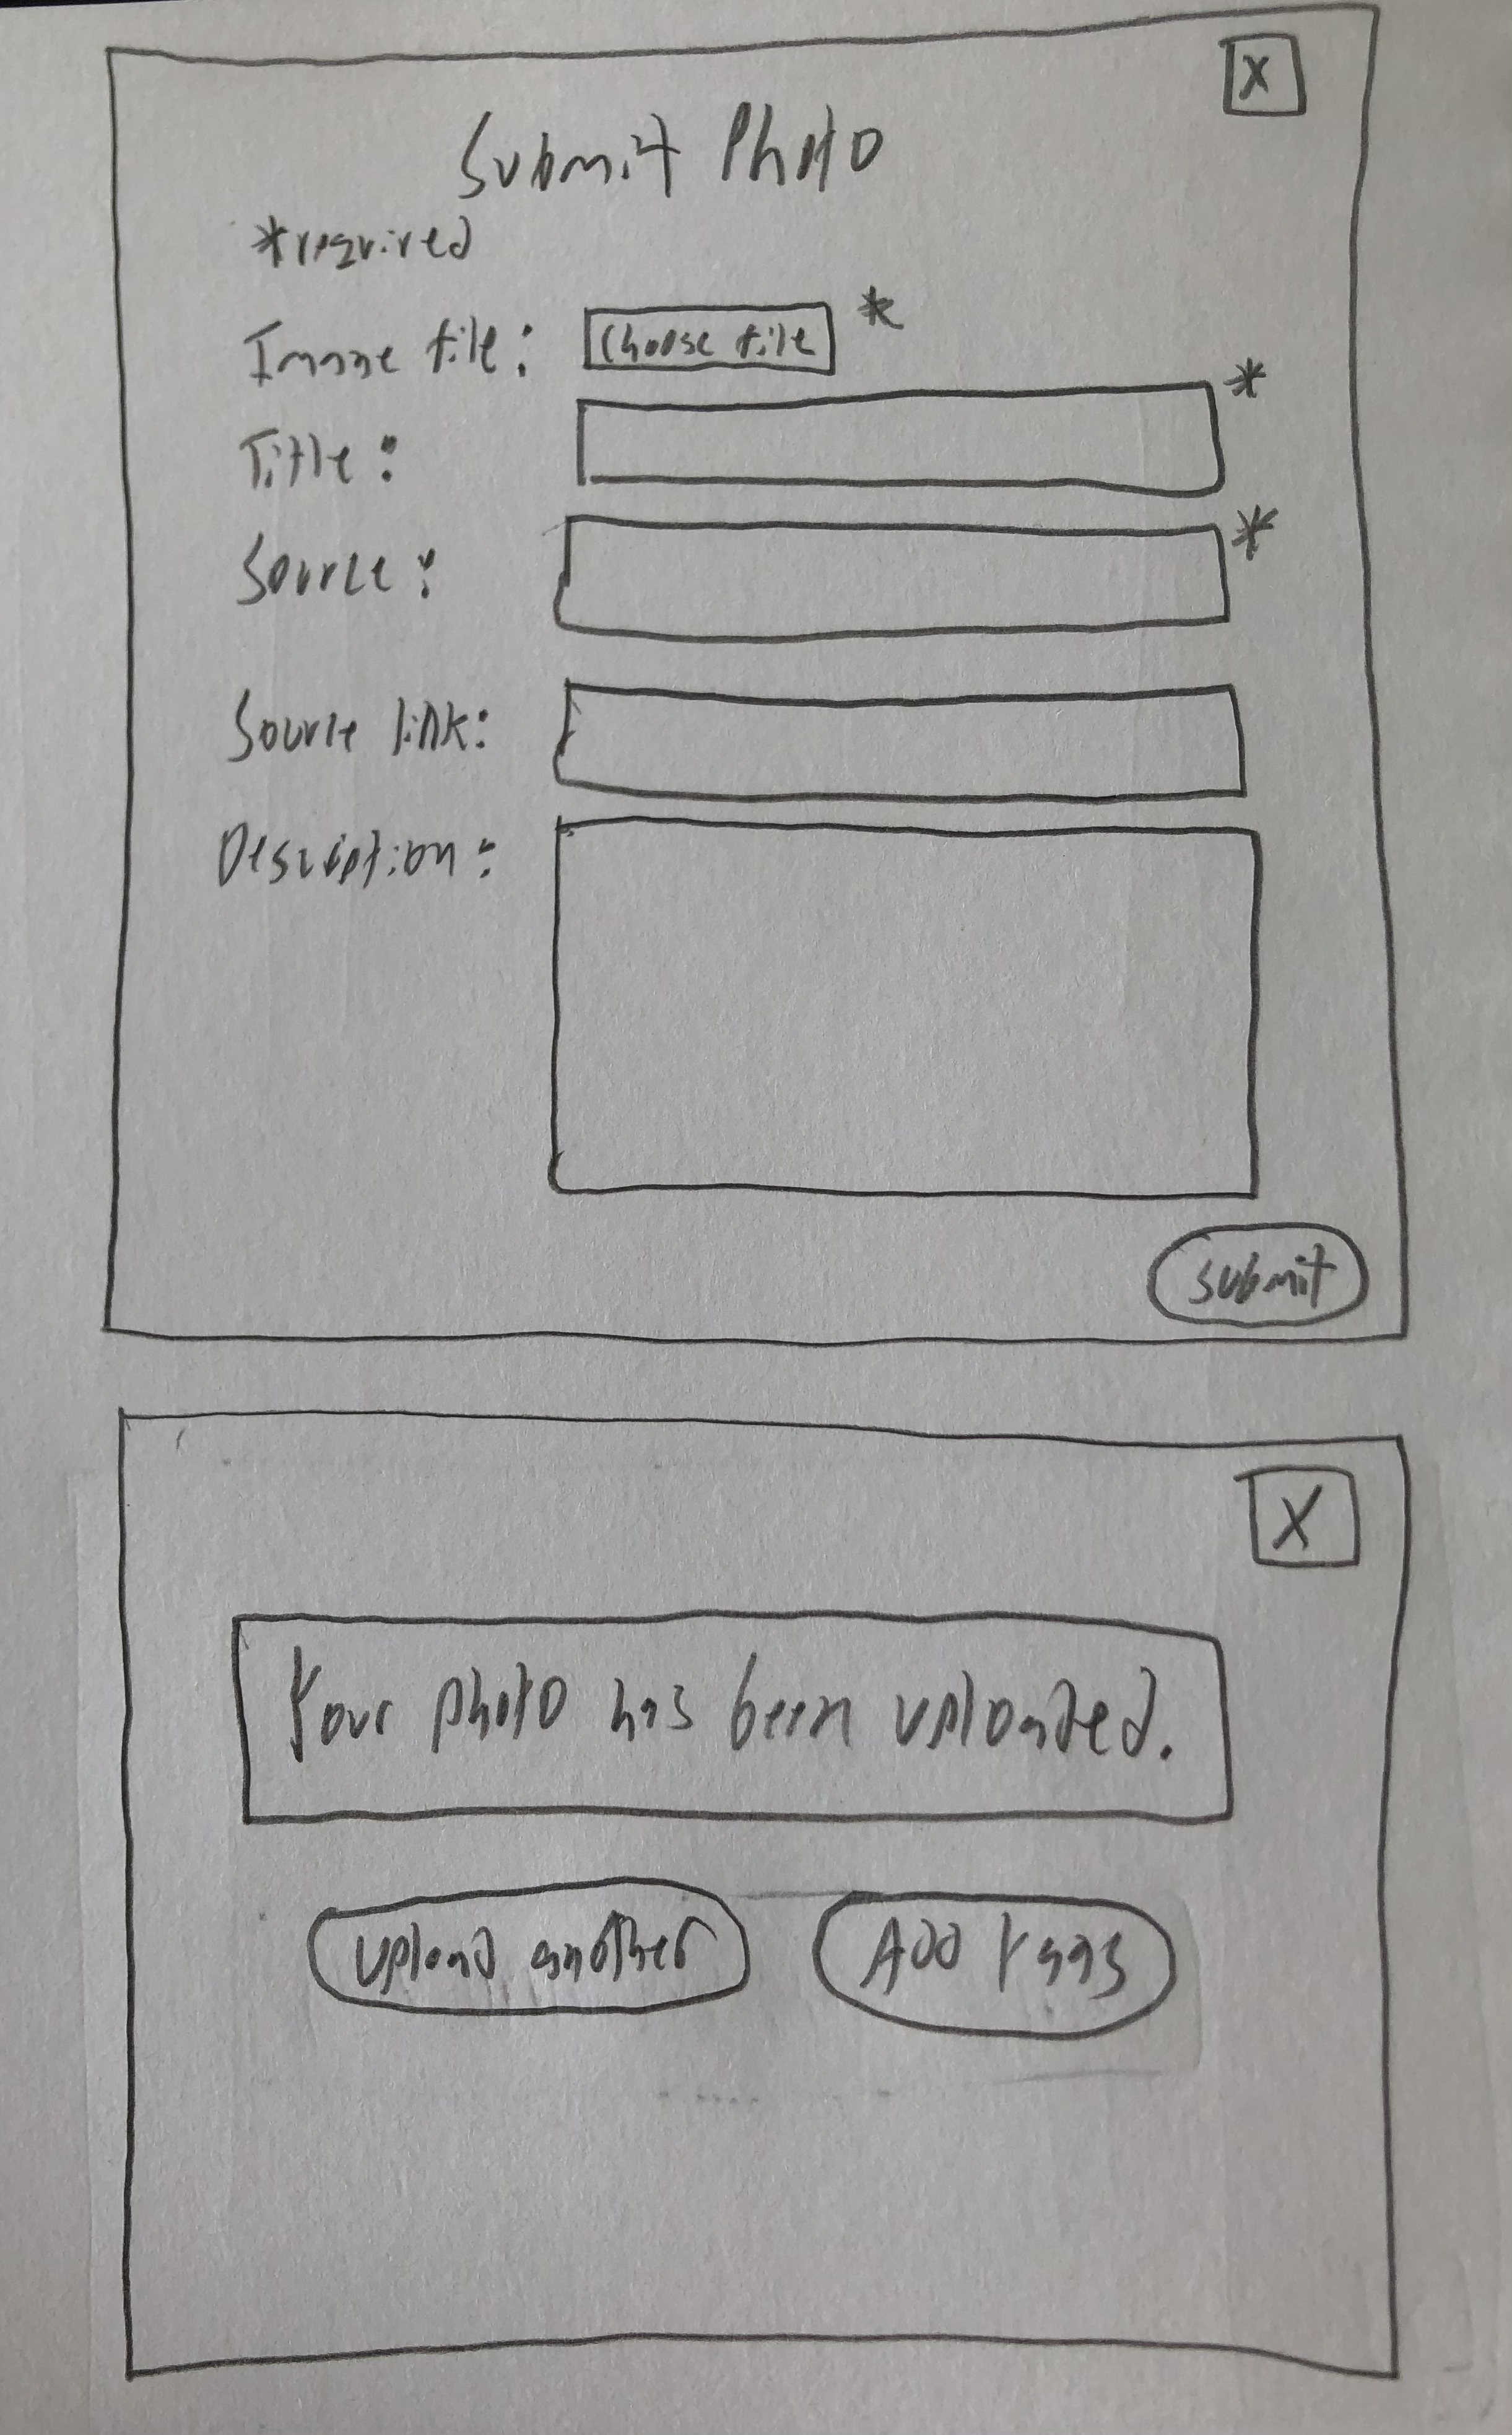 X
Submit Photo
*required
Image file: Choose file *
Title: *
Source: *
Source link:
Description:
submit
X
Your photo has been uploaded.
upload another Add tags